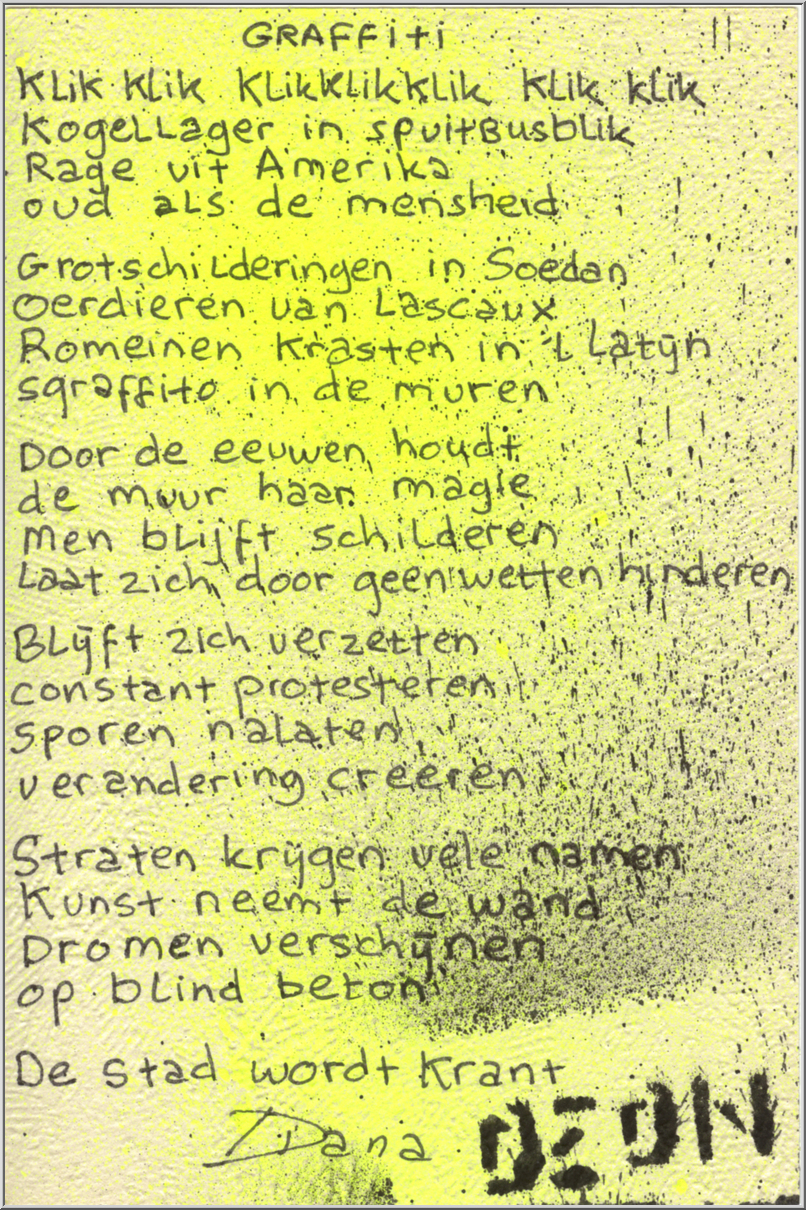 GRAFFiti
Klik Klik KlikKlikKlik Klik klik
Kogellager in spuitBusblik
Rage uit Amerika
oud als de mensheid
Grotschilderingen in Soedan
Oerdieren van Lascaux
Romeinen krasten in 't Latijn
sgraffito in de muren
Door de eeuwen houdt
de muur haar magie
men blijft schilderen
Laat zich door geen wetten hinderen
Blijft zich verzetten
constant protesteren
sporen nalaten
verandering creëren
Straten krijgen vele namen
Kunst neemt de wand
Dromen verschijnen
op blind beton
De stad wordt Krant
Dana